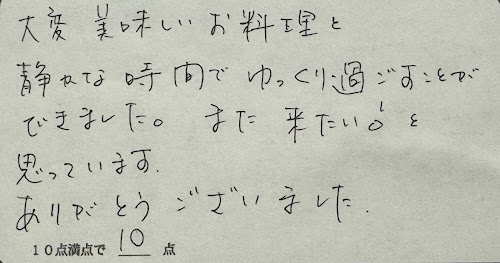 大変 美味しい お料理と
静かな 時間で ゆっくり過ごすことが
できました。 また 来たい!。と
思っています.
ありがとう ございました.
10点満点で 10 点